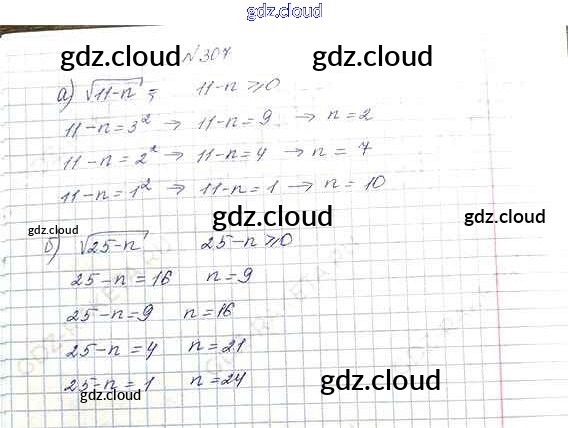 gdz.cloud
gdz.cloud gdz.cloud
N 307
а) √11-n = 11-n ≥ 0
11-n = 3² → 11-n = 9 → n = 2
11-n = 2² → 11-n = 4 → n = 7
11-n = 1² → 11-n = 1 → n = 10
gdz.cloud gdz.cloud gdz.cloud
б) √25-n 25-n ≥ 0
25-n = 16 n = 9
25-n = 9 n = 16
25-n = 4 n = 21
25-n = 1 n = 24
gdz.cloud gdz.cloud